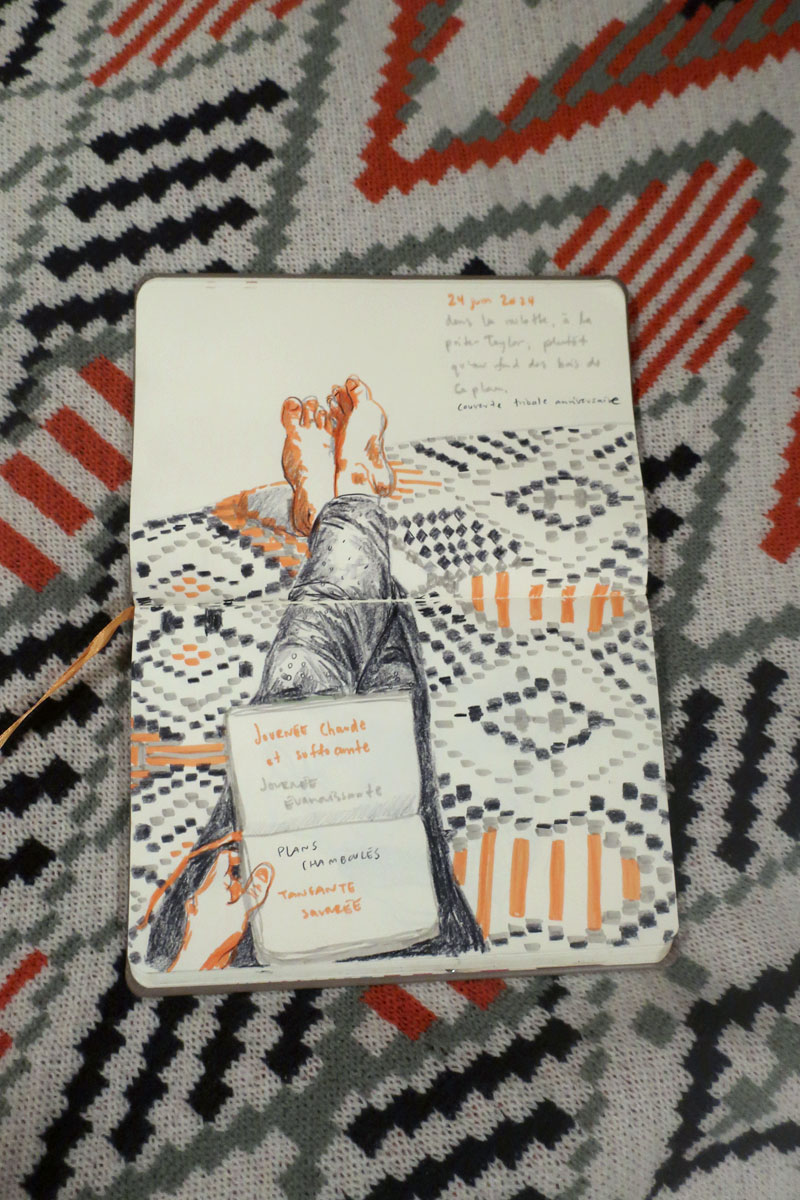 24 juin 2024
dans la culotte, à la
Taylor, plutôt
qu'au fond des bois de
couverte tribale anniversaire
Journée Chaude
et suffocante
Journée
évanouissante
PLANS
CHAMBOULÉS
TANFANTE
SOIRÉE